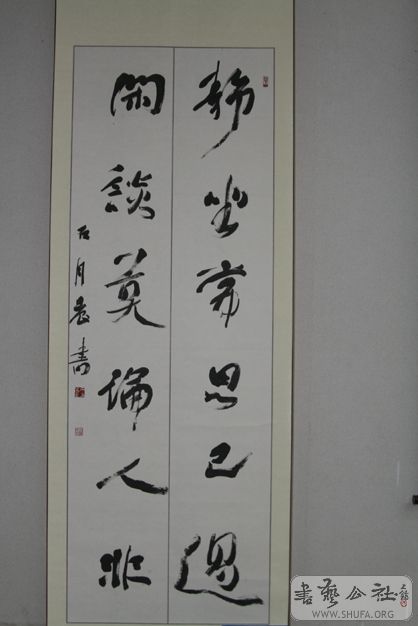 静坐常思己過
閑談莫論人非
石月岩書
書藝公社
WWW.SHUFA.ORG